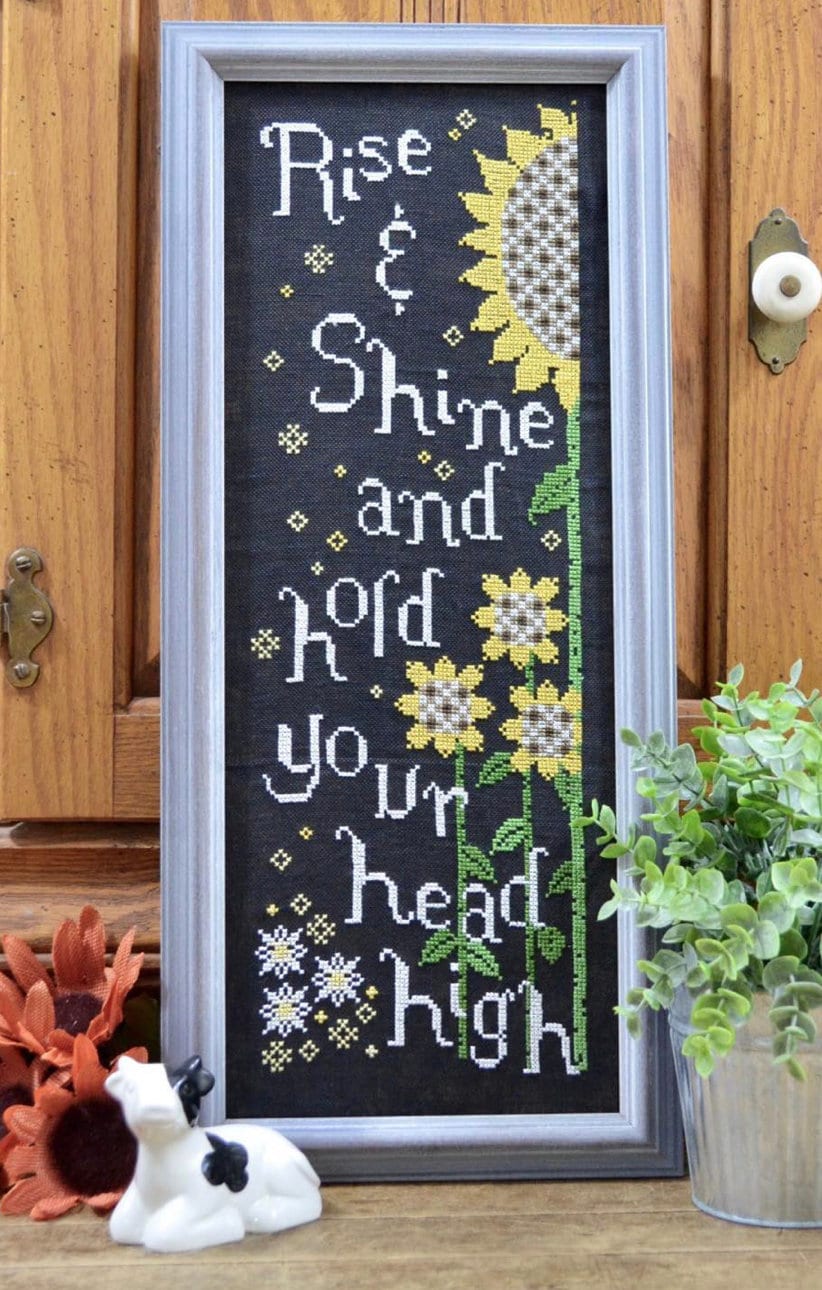 Rise
&
Shine
and
hold
your
head
high